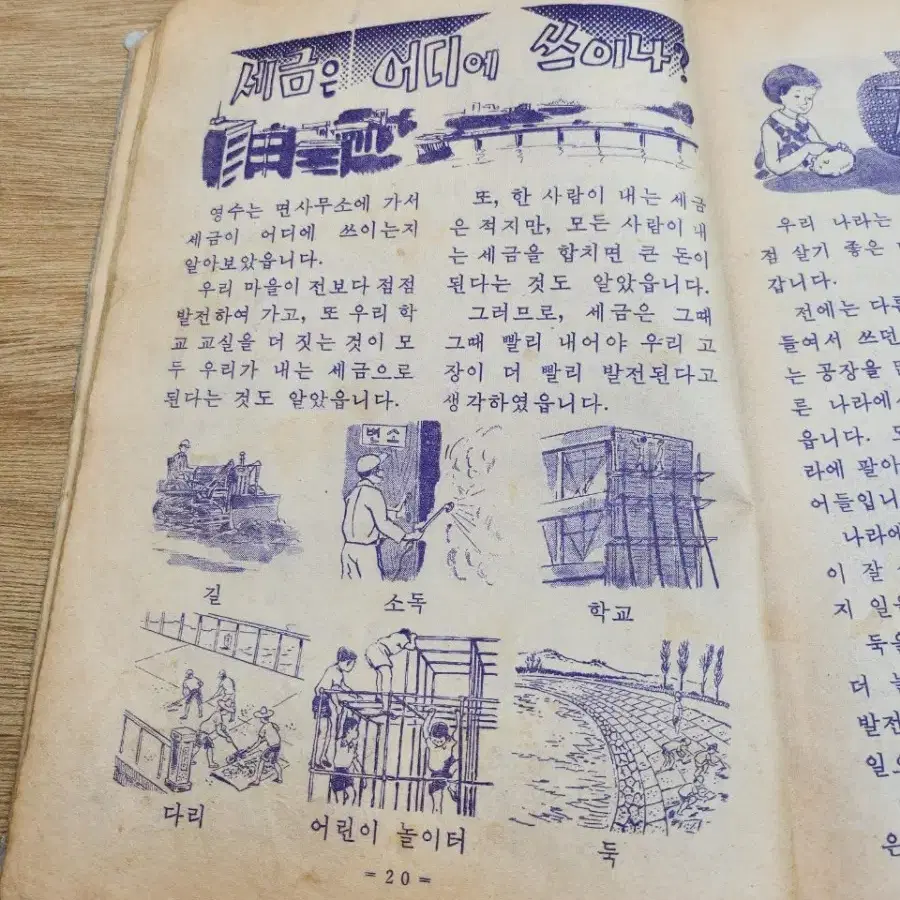 세금은 어디에 쓰이나?
영수는 면사무소에 가서
세금이 어디에 쓰이는지
알아보았읍니다.
우리 마을이 전보다 점점
발전하여 가고, 또 우리 학
교 교실을 더 짓는 것이 모
두 우리가 내는 세금으로
된다는 것도 알았읍니다.
또, 한 사람이 내는 세금
은 적지만, 모든 사람이 내
는 세금을 합치면 큰 돈이
된다는 것도 알았읍니다.
그러므로, 세금은 그때
그때 빨리 내어야 우리 고
장이 더 빨리 발전된다고
생각하였읍니다.
변소
길
소독
학교
다리
어린이 놀이터
둑
=20=
우리 나라는
점 살기 좋은
갑니다.
전에는 다른
들여서 쓰던
는 공장을
른 나라에서
읍니다.
라에 팔아
어들입니
나라에
이 잘
지 일
둑을
더
발전
일
은